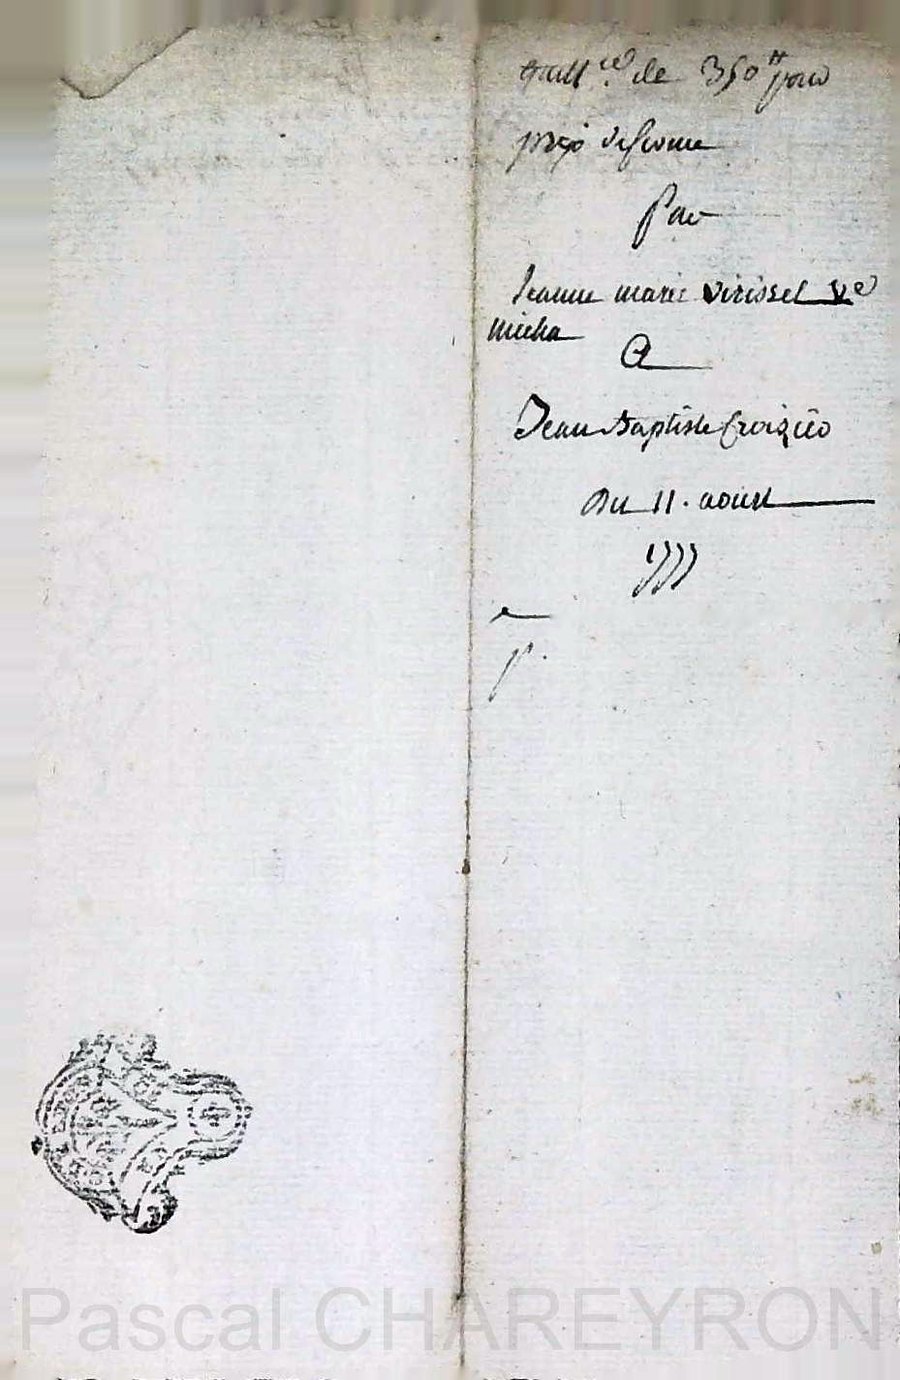 quitt.ce de 350# pour
prix de ferme
Par
Jeanne marie virissel Ve
micha
A
Jean Baptiste Croizier
Du 11. aoust
1777
p.
Pascal CHAREYRON